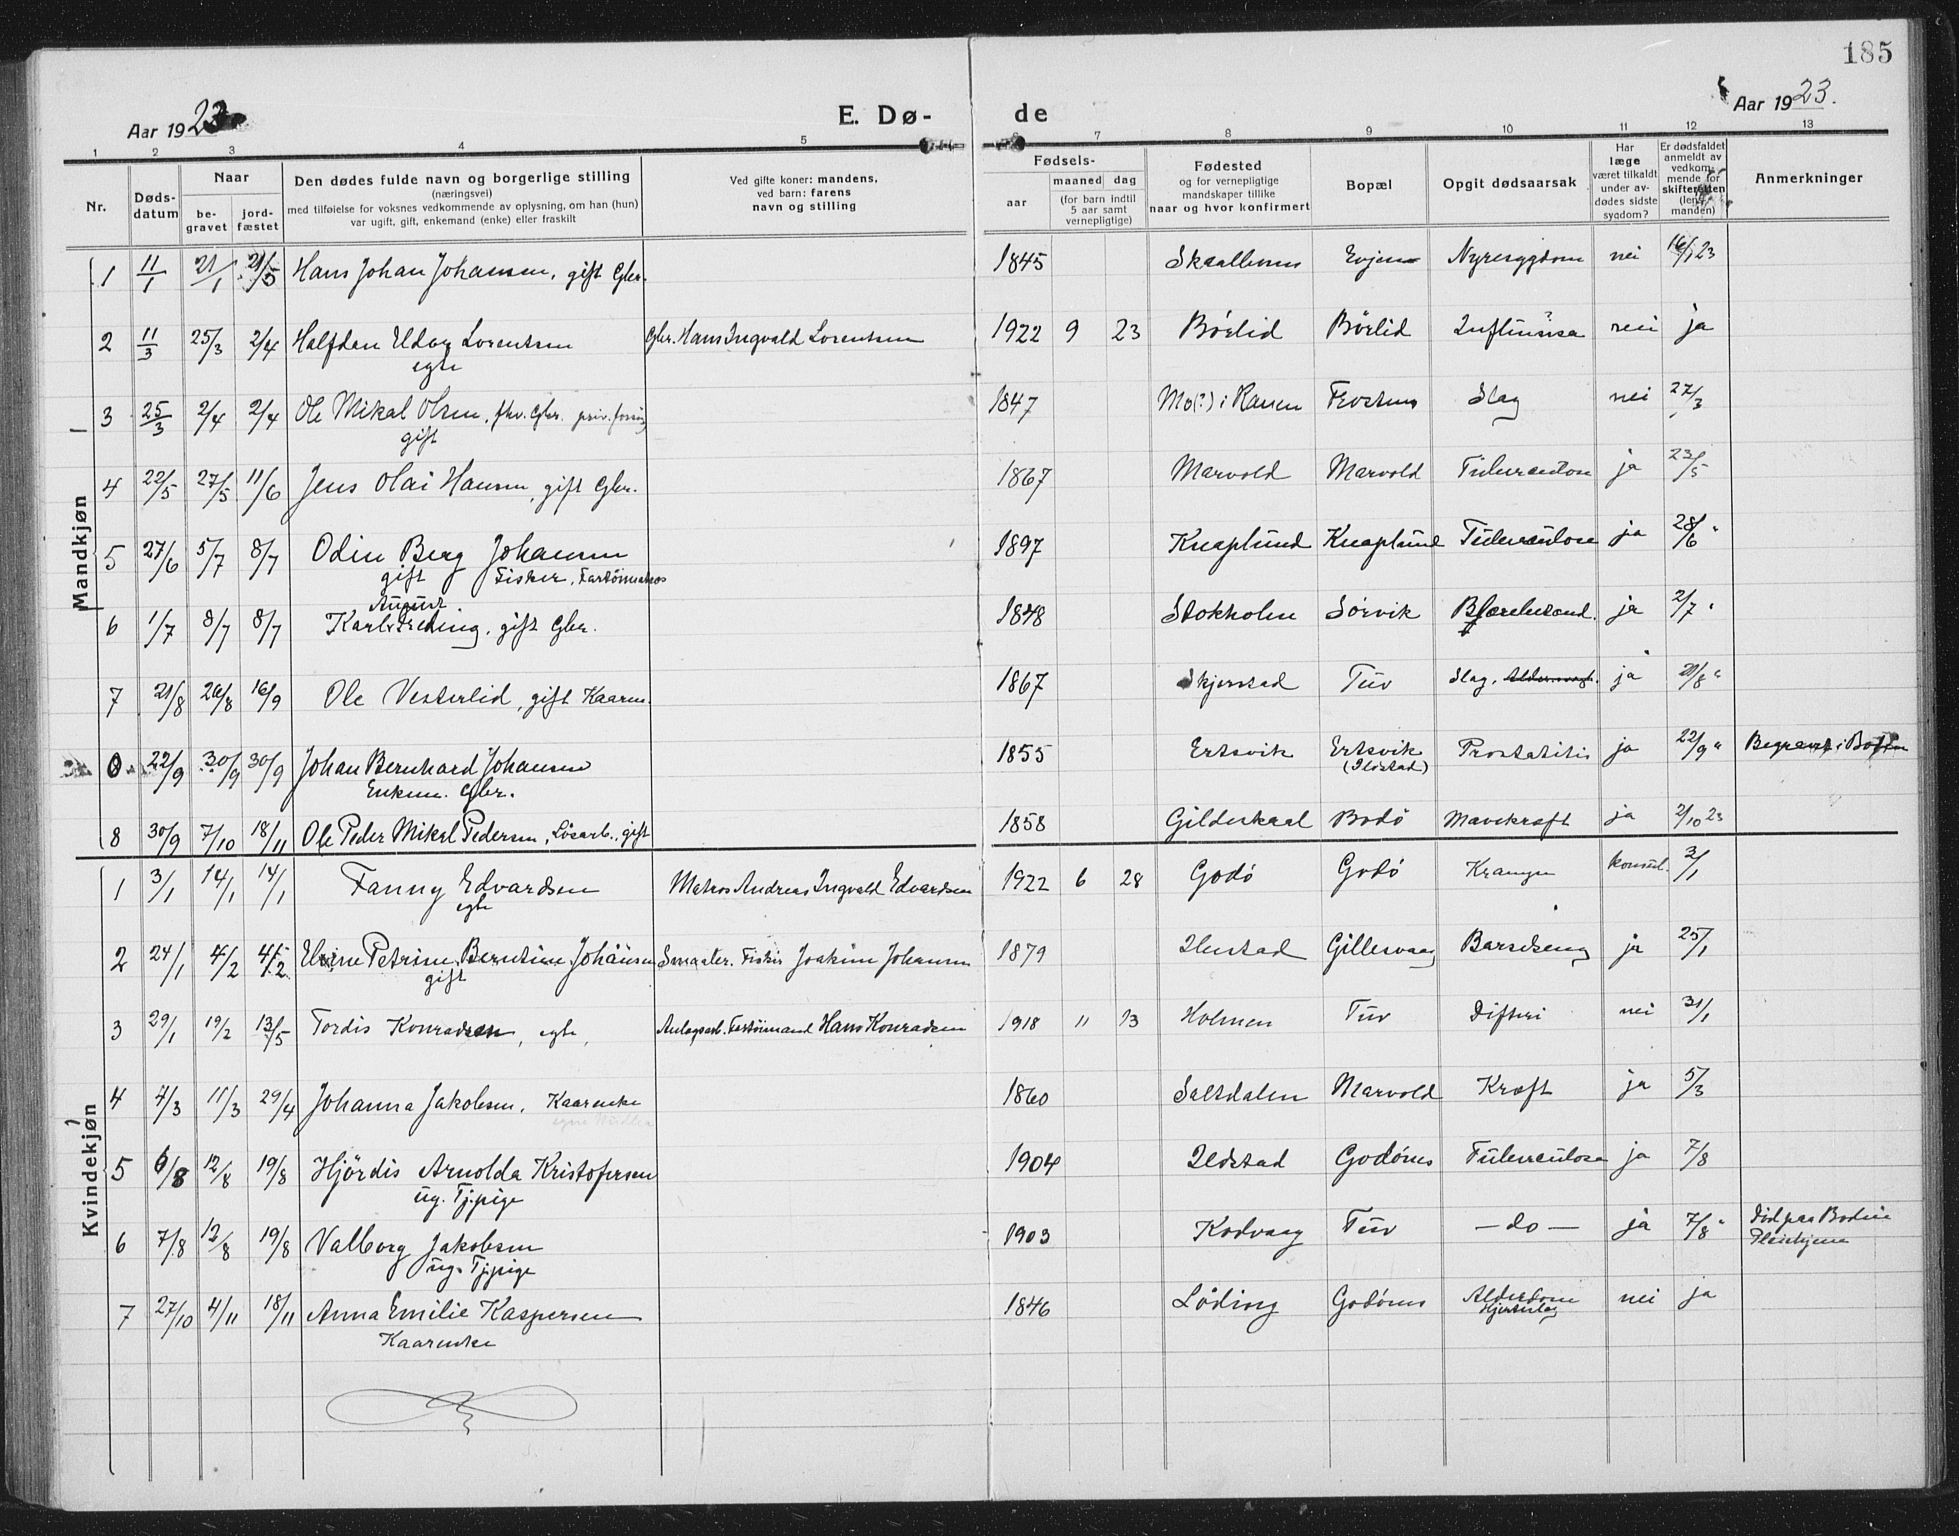 185
Aar 1923
E. Dø-
de
Aar 1923.
1 2 3 4 5 6 7 8 9 10 11 12 13
Nr.
Døds-
datum
Naar
be-
gravet
jord-
fæstet
Den dødes fulde navn og borgerlige stilling
(næringsvei)
med tilføielse for voksnes vedkommende av oplysning, om han (hun)
var ugift, gift, enkemand (enke) eller fraskilt
Ved gifte koner: mandens,
ved barn: farens
navn og stilling
Fødsels-
aar
maaned dag
(for barn indtil
5 aar samt
vernepligtige)
Fødested
og for vernepligtige
mandskaper tillike
naar og hvor konfirmert
Bopæl
Opgit dødsaarsak
Har
læge
været tilkaldt
under av-
dødes sidste
sygdom?
Er dødsfaldet
anmeldt av
vedkom-
mende for
skifteretten
(lens-
manden)
Anmerkninger
Mandkjøn
1 11/1 21/1 21/5 Hans Johan Johansen, gift Gbr. 1845 Evjen Nyresygdom nei 16/1 23
2 11/3 25/3 2/4 Halfdan Lorentsen Gbr. Hans Ingvald Lorentsen 1922 9 23 Börlid Börlid nei ja
egte
3 25/3 2/4 2/4 Ole Mikal Olsen, fhv. Gbr. 1847 Mo(?) i Ranen Slag nei 27/3
gift
4 22/5 27/5 11/6 Jens Olai Hansen, gift Gbr. 1867 Marvold Marvold ja 23/5
5 27/6 5/7 8/7 Odin Berg Johansen 1897 Knaplund Knaplund Tuberculose ja 28/6 "
gift Fisker,
August
6 1/7 8/7 8/7 Karl gift Gbr. 1848 Stokholm Sörvik ja 2/7 "
7 21/8 26/8 16/9 Ole Vesterlid, gift Kaarm. 1867 Skjerstad Tuv Slag, ja 21/8 "
0 22/9 30/9 30/9 Johan Bernhard Johansen 1855 Ertsvik Ertsvik Prostatitis ja 22/9 " Begravet i Bodin
Enkem. Gbr. (Ildstad)
8 30/9 7/10 18/11 Ole Peder Mikal Pedersen, Lösarb., gift 1858 Gildeskaal Bodö Mavekræft ja 2/10 23
Kvindekjøn
1 3/1 14/1 14/1 Fanny Edvardsen Matros Andreas Ingvald Edvardsen 1922 6 28 Godö Godö Krampe konsul. 3/1
egte
2 24/1 4/2 4/2 Petrine Berntine Johansen Fisker Joakim Johansen 1879 Gillesvaag Barselseng ja 25/1
gift
3 29/1 19/2 13/5 Tordis Konradsen, egte, Hans Konradsen 1918 11 13 Holmen Tuv Difteri nei 31/1
4 4/3 11/3 29/4 Johanna Jakobsen, Kaarenke 1860 Saltdalen Marvold Kræft ja 5/3
5 6/8 12/8 19/8 Hjördis Arnolda Kristofersen 1904 Ildstad Godönes Tuberculose ja 7/8
ug. Tj.pige
6 7/8 12/8 19/8 Valborg Jakobsen 1903 Kodvaag Tuv — do — ja 7/8 " Död paa Bodin
ug. Tj.pige Pleiehjem
7 27/10 4/11 18/11 Anna Emilie Kaspersen 1846 Löding Godönes Alderdom nei ja
Kaarenke Hjerteslag